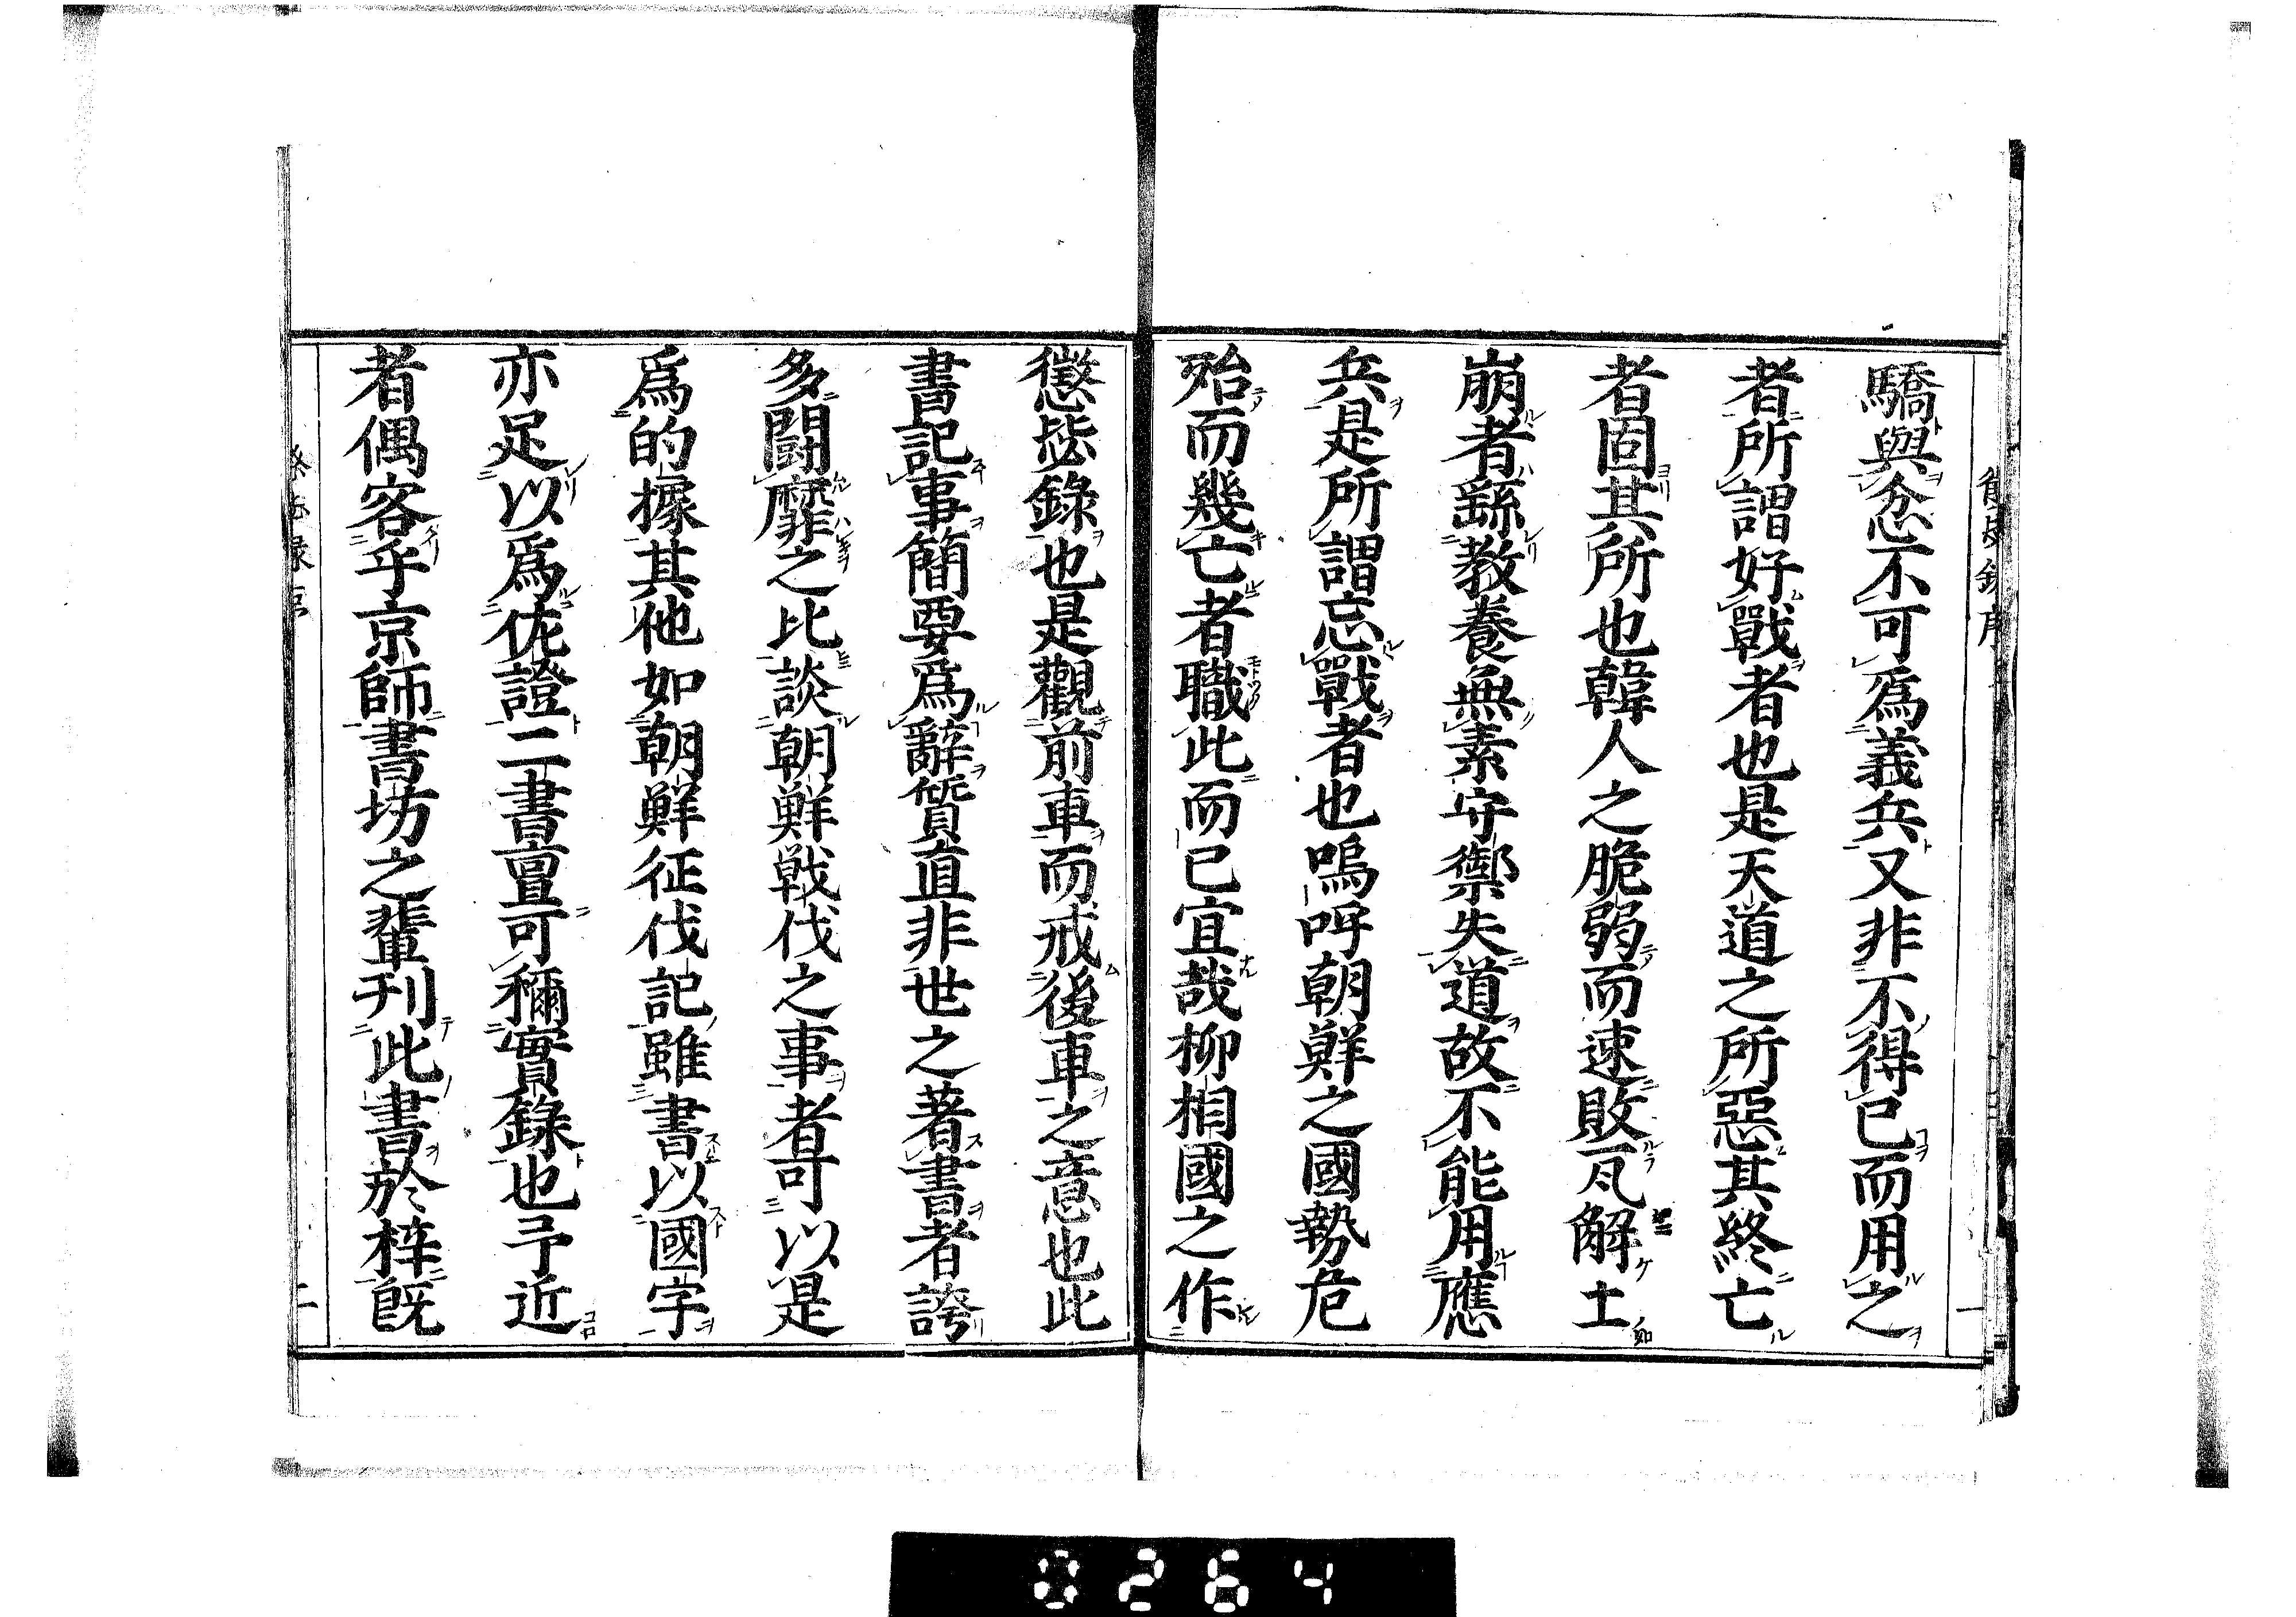 驕與忿不可爲義兵又非不得已而用之
者所謂好戰者也是天道之所惡其終亡
者固其所也韓人之脆弱而速敗瓦解土
崩者繇教養無素守禦失道故不能用應
兵是所謂忘戰者也嗚呼朝鮮之國勢危
殆而幾亡者職此而已宜哉柳相國之作
懲毖錄也是觀前車而戒後車之意也此
書記事簡要爲辭質直非世之著書者誇
多鬪靡之比談朝鮮戰伐之事者可以是
爲的據其他如朝鮮征伐記雖書以國字
亦足以爲佐證二書亶可稱實錄也予近
者偶客乎京師書坊之輩刊此書於梓既
二
0264